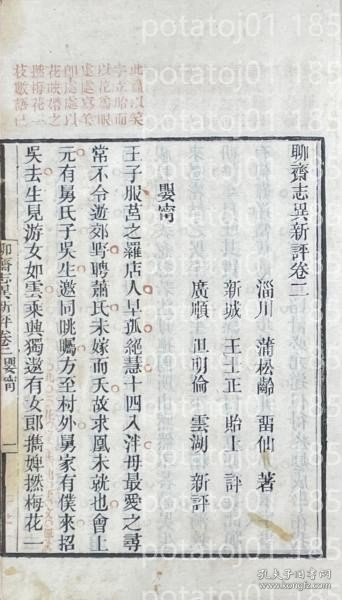 聊齋志異新評卷二
淄川 蒲松齡 畱仙 著
新城 王士正 貽上 評
廣順 但明倫 雲湖 新評
嬰甯
王子服莒之羅店人早孤絕慧十四入泮母最愛之尋
常不令遊郊野聘蕭氏未嫁而夭故求凰未就也會上
元有舅氏子吳生邀同眺矚方至村外舅家有僕來招
吳去生見游女如雲乘興獨遨有女郎攜婢撚梅花一
此篇以笑
字立胎而
以花爲眼
處處寫笑
卽處處以
花映帶之
撚梅花一
枝數語已
聊齋志異新評卷二 嬰甯 一
potatoj01 185
孔夫子旧书网